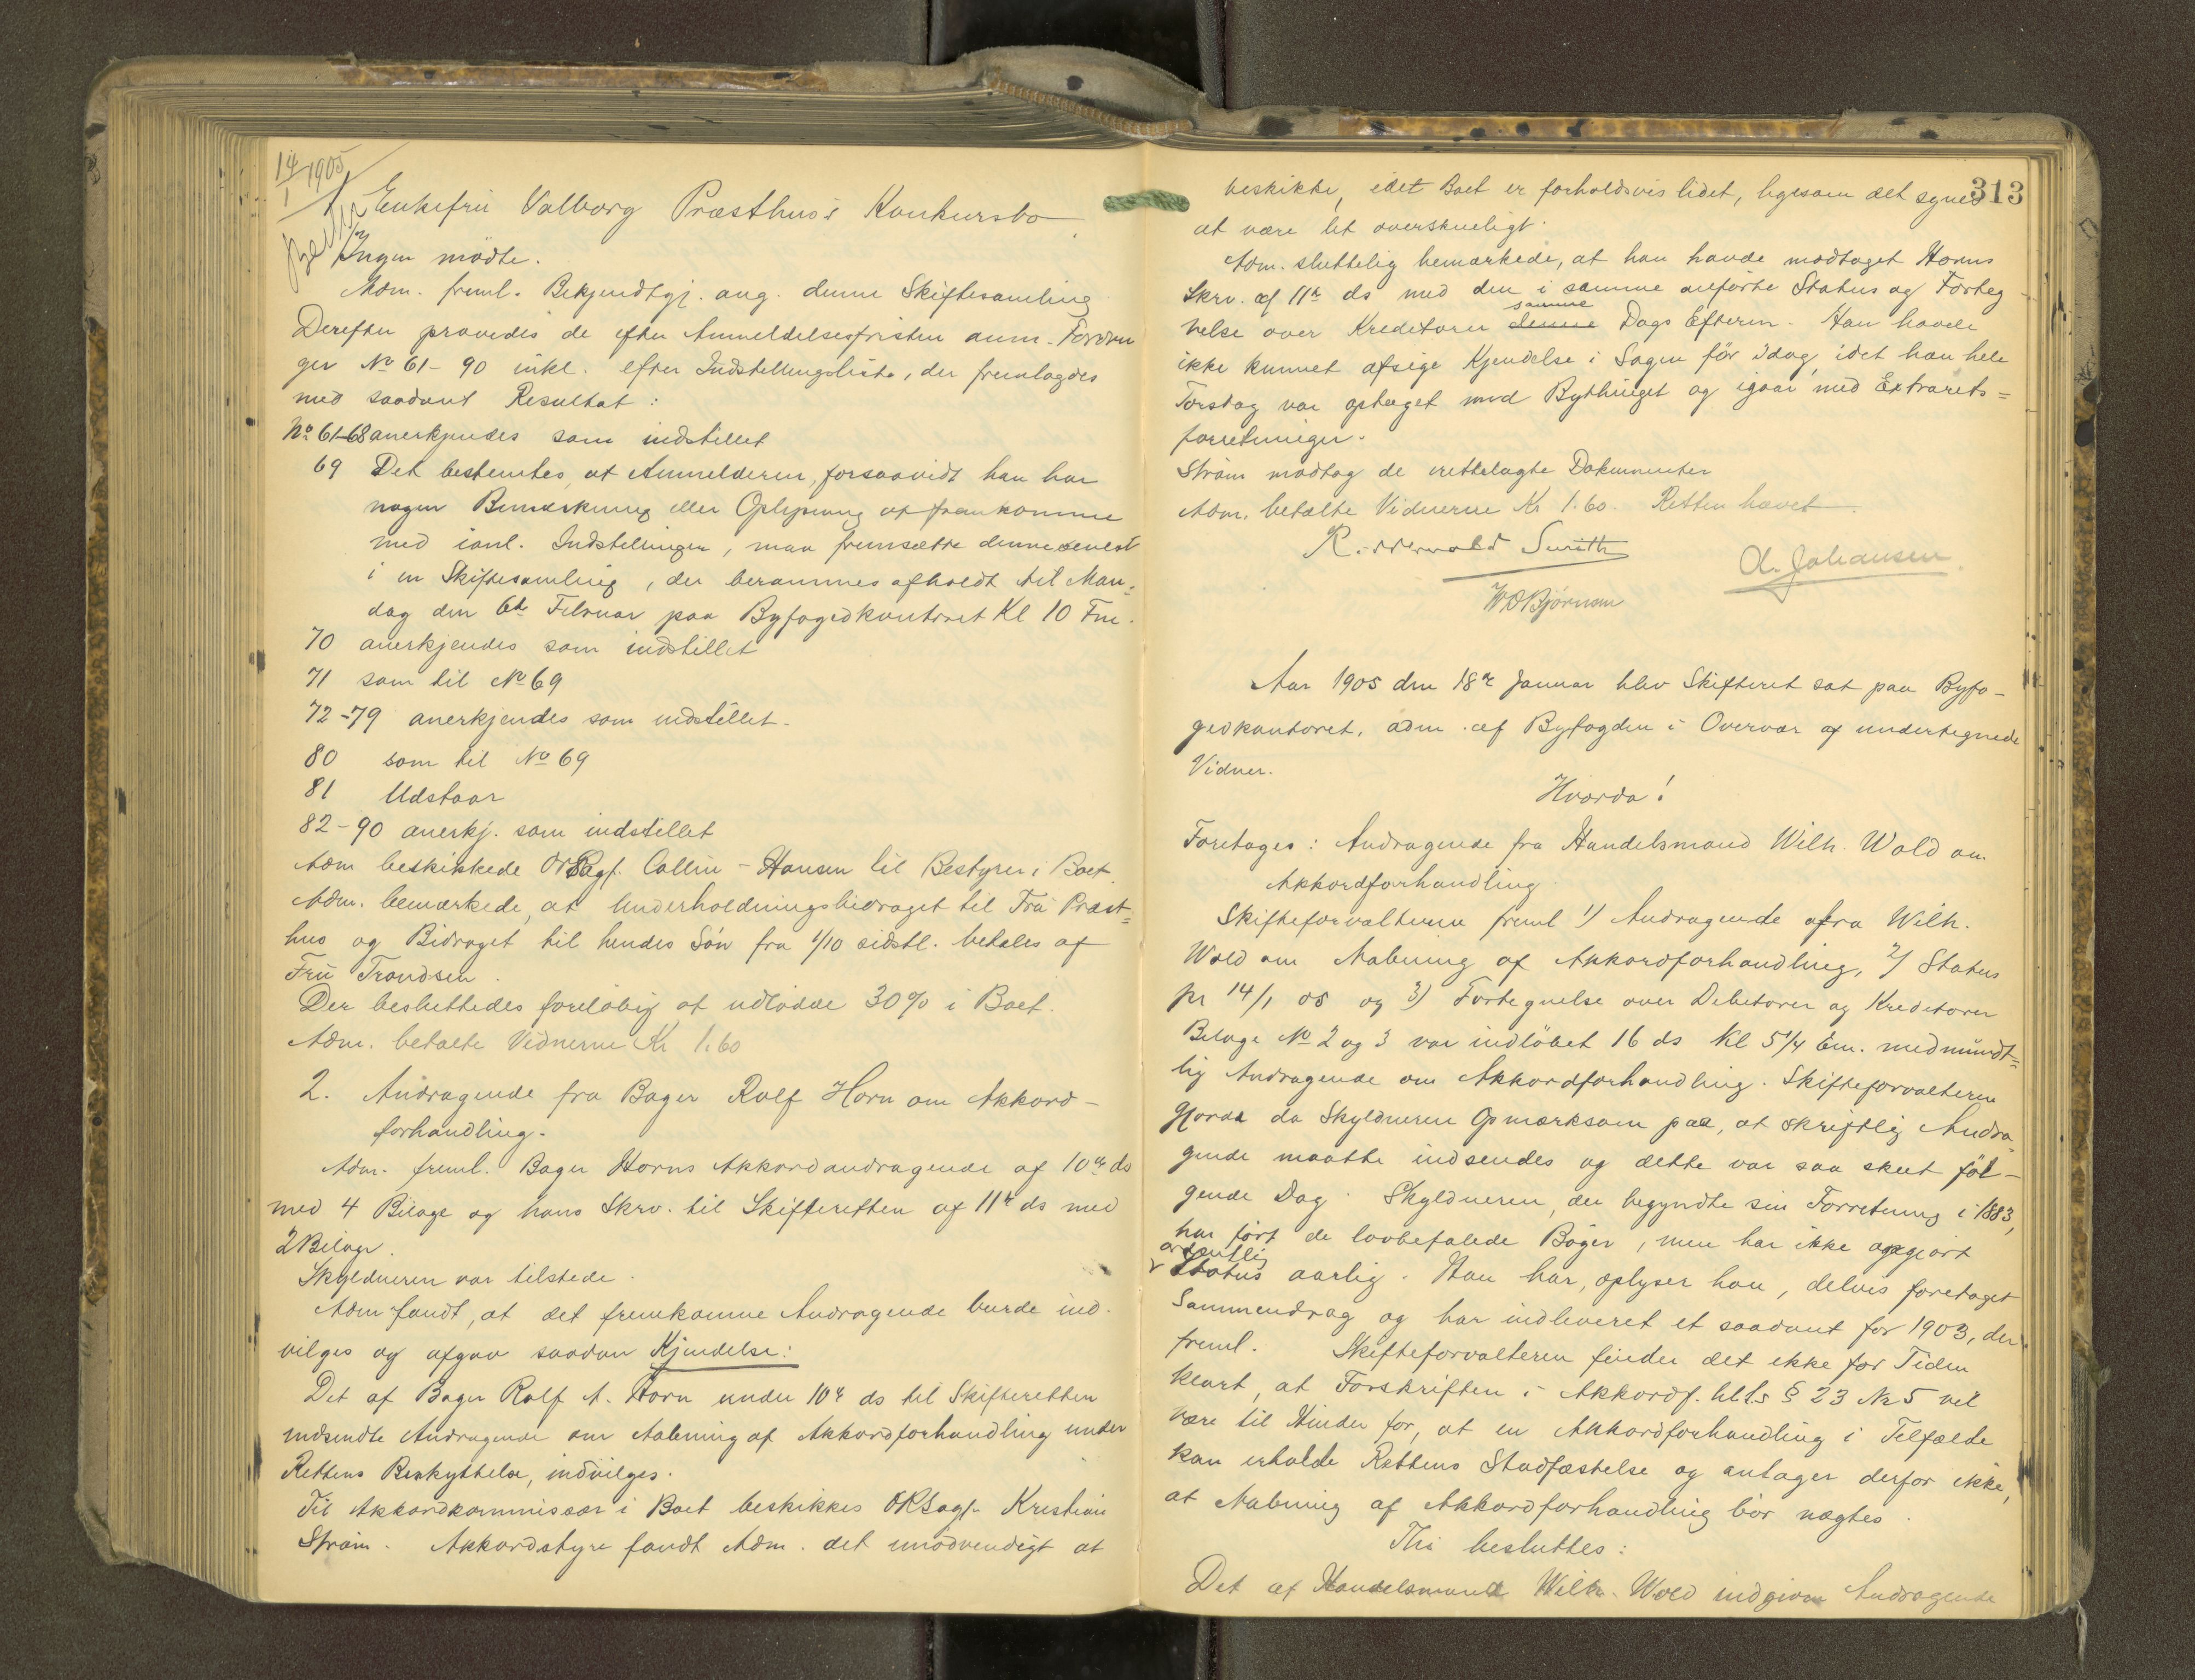 14/1 1905
1 Enkefru Valborg Præsthus's Konkursbo.
Ingen mödte.
Adm. freml. Bekjendtgj. ang. denne Skiftesamling
Derefter prøvedes de efter Anmeldelsesfristen anm. Fordrin
ger No 61-90 inkl. efter Indstillingsliste, der fremlagdes
med saadant Resultat:
No 61-68 anerkjendes som indstillet
69 Det bestemtes, at Anmelderen, forsaavidt han har
nogen Bemærkning eller Oplysning at fremkomme
med ianl. Indstillingen, maa fremsætte denne senest
i en Skiftesamling, der berammes afholdt til Man-
dag den 6te Februar paa Byfogedkontoret Kl 10 Fm.
70 anerkjendes som indstillet
71 som til No 69
72-79 anerkjendes som indstillet.
80 som til No 69
81 Udstaar
82-90 anerkj. som indstillet
Adm beskikkede ORSagf. Collin-Hansen til Bestyrer i Boet.
Adm. bemærkede, at Underholdningsbidraget til Fru Præst=
hus og Bidraget til hendes Sön fra 1/10 sidstl. betales af
Fru Trondsen.
Der besluttedes foreløbig at udlodde 30% i Boet.
Adm. betalte Vidnerne Kr 1.60
2. Andragende fra Bager Rolf Horn om Akkord-
forhandling.
Adm. freml. Bager Horns Akkordandragende af 10de ds
med 4 Bilage og hans Skrv. til Skifteretten af 11te ds med
2 Bilage.
Skyldneren var tilstede.
Adm fandt, at det fremkomne Andragende burde ind.
vilges og afgav saadan Kjendelse:
Det af Bager Rolf A. Horn under 10de ds til Skifteretten
indsendte Andragende om Aabning af Akkordforhandling under
Rettens Beskyttelse, indvilges.
Til Akkordkommissær i Boet beskikkes ORSagf. Kristian
Strøm. Akkordstyre fandt Adm. det unödvendigt at
313
beskikke, idet Boet er forholdsvis lidet, ligesom det synes
at være let overskueligt.
Adm. sluttelig bemærkede, at han havde modtaget Horns
Skrv. af 11te ds med den i samme anførte Status og Forteg
samme
nelse over Kreditorer denne Dags Efterm. Han havde
ikke kunnet afsige Kjendelse i Sagen för idag, idet han hele
Torsdag var optaget med Bythinget og igaar med Extrarets=
forretninger.
Strøm modtog de irettelagte Dokumenter
Adm. betalte Vidnerne Kr 1.60. Retten hævet.
Ridderwold Smith
A. Johansen
W O Bjørnson
Aar 1905 den 18de Januar blev Skifteret sat paa Byfo-
gedkontoret, adm. af Byfogden i Overvær af undertegnede
Vidner.
Hvorda!
Foretages: Andragende fra Handelsmand Wilh. Wold om
Akkordforhandling.
Skifteforvalteren freml 1) Andragende fra Wilh.
Wold om Aabning af Akkordforhandling, 2) Status
pr 14/1 05 og 3) Fortegnelse over Debitorer og Kreditorer
Bilage No 2 og 3 var indløbet 16 ds Kl 5 1/4 Em. med mundt=
lig Andragende om Akkordforhandling. Skifteforvalteren
gjorde da Skyldneren Opmærksom paa, at skriftlig Andra
gende maatte indsendes og dette var saa skeet föl-
gende Dag. Skyldneren, der begyndte sin Forretning i 1883,
har fört de lovbefalede Böger, men har ikke opgjort
ordentlig
Status aarlig. Han har, oplyser han, delvis foretaget
Sammendrag og har indleveret et saadant for 1903, der
freml. Skifteforvalteren finder det ikke for Tiden
klart, at Forskriften i Akkordf. hl.l.s § 23 No 5 vil
være til Hinder for, at en Akkordforhandling i Tilfælde
kan erholde Rettens Stadfæstelse og antager derfor ikke,
at Aabning af Akkordforhandling bör nægtes.
Thi besluttes:
Det af Handelsmand Wilh. Wold indgivne Andragende